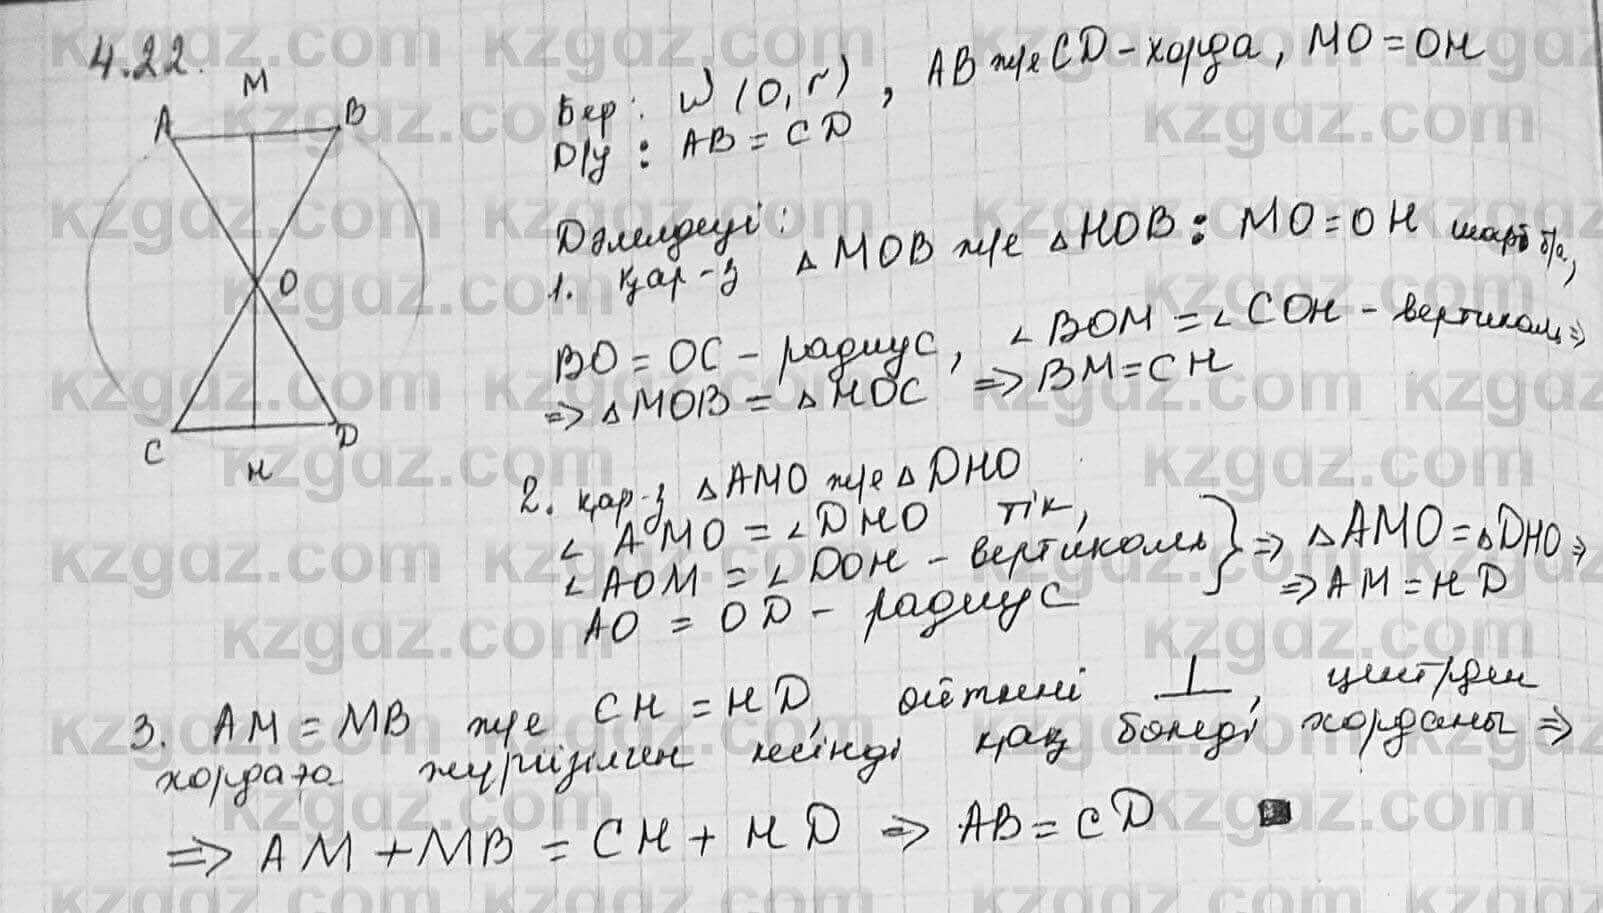 4.22.
M
A
B
O
C
D
H
Бер: ω(O, r), AB ж/е CD - хорда, MO = OH
D/y : AB = CD
Дәлелдеуі:
1. қар-з △MOB ж/е △HOB : MO = OH шарт б/а,
BO = OC - радиус, ∠BOM = ∠COH - вертикаль ⇒
⇒ △MOB = △HOC ⇒ BM = CH
2. қар-з △AMO ж/е △DHO
∠AMO = ∠DHO тік,
∠AOM = ∠DOH - вертикаль } ⇒ △AMO = △DHO ⇒
AO = OD - радиус ⇒ AM = HD
3. AM = MB ж/е CH = HD, өйткені ⊥, центрден
хордаға жүргізілген кесінді қақ бөледі хорданы ⇒
⇒ AM + MB = CH + HD ⇒ AB = CD
kzgaz.com